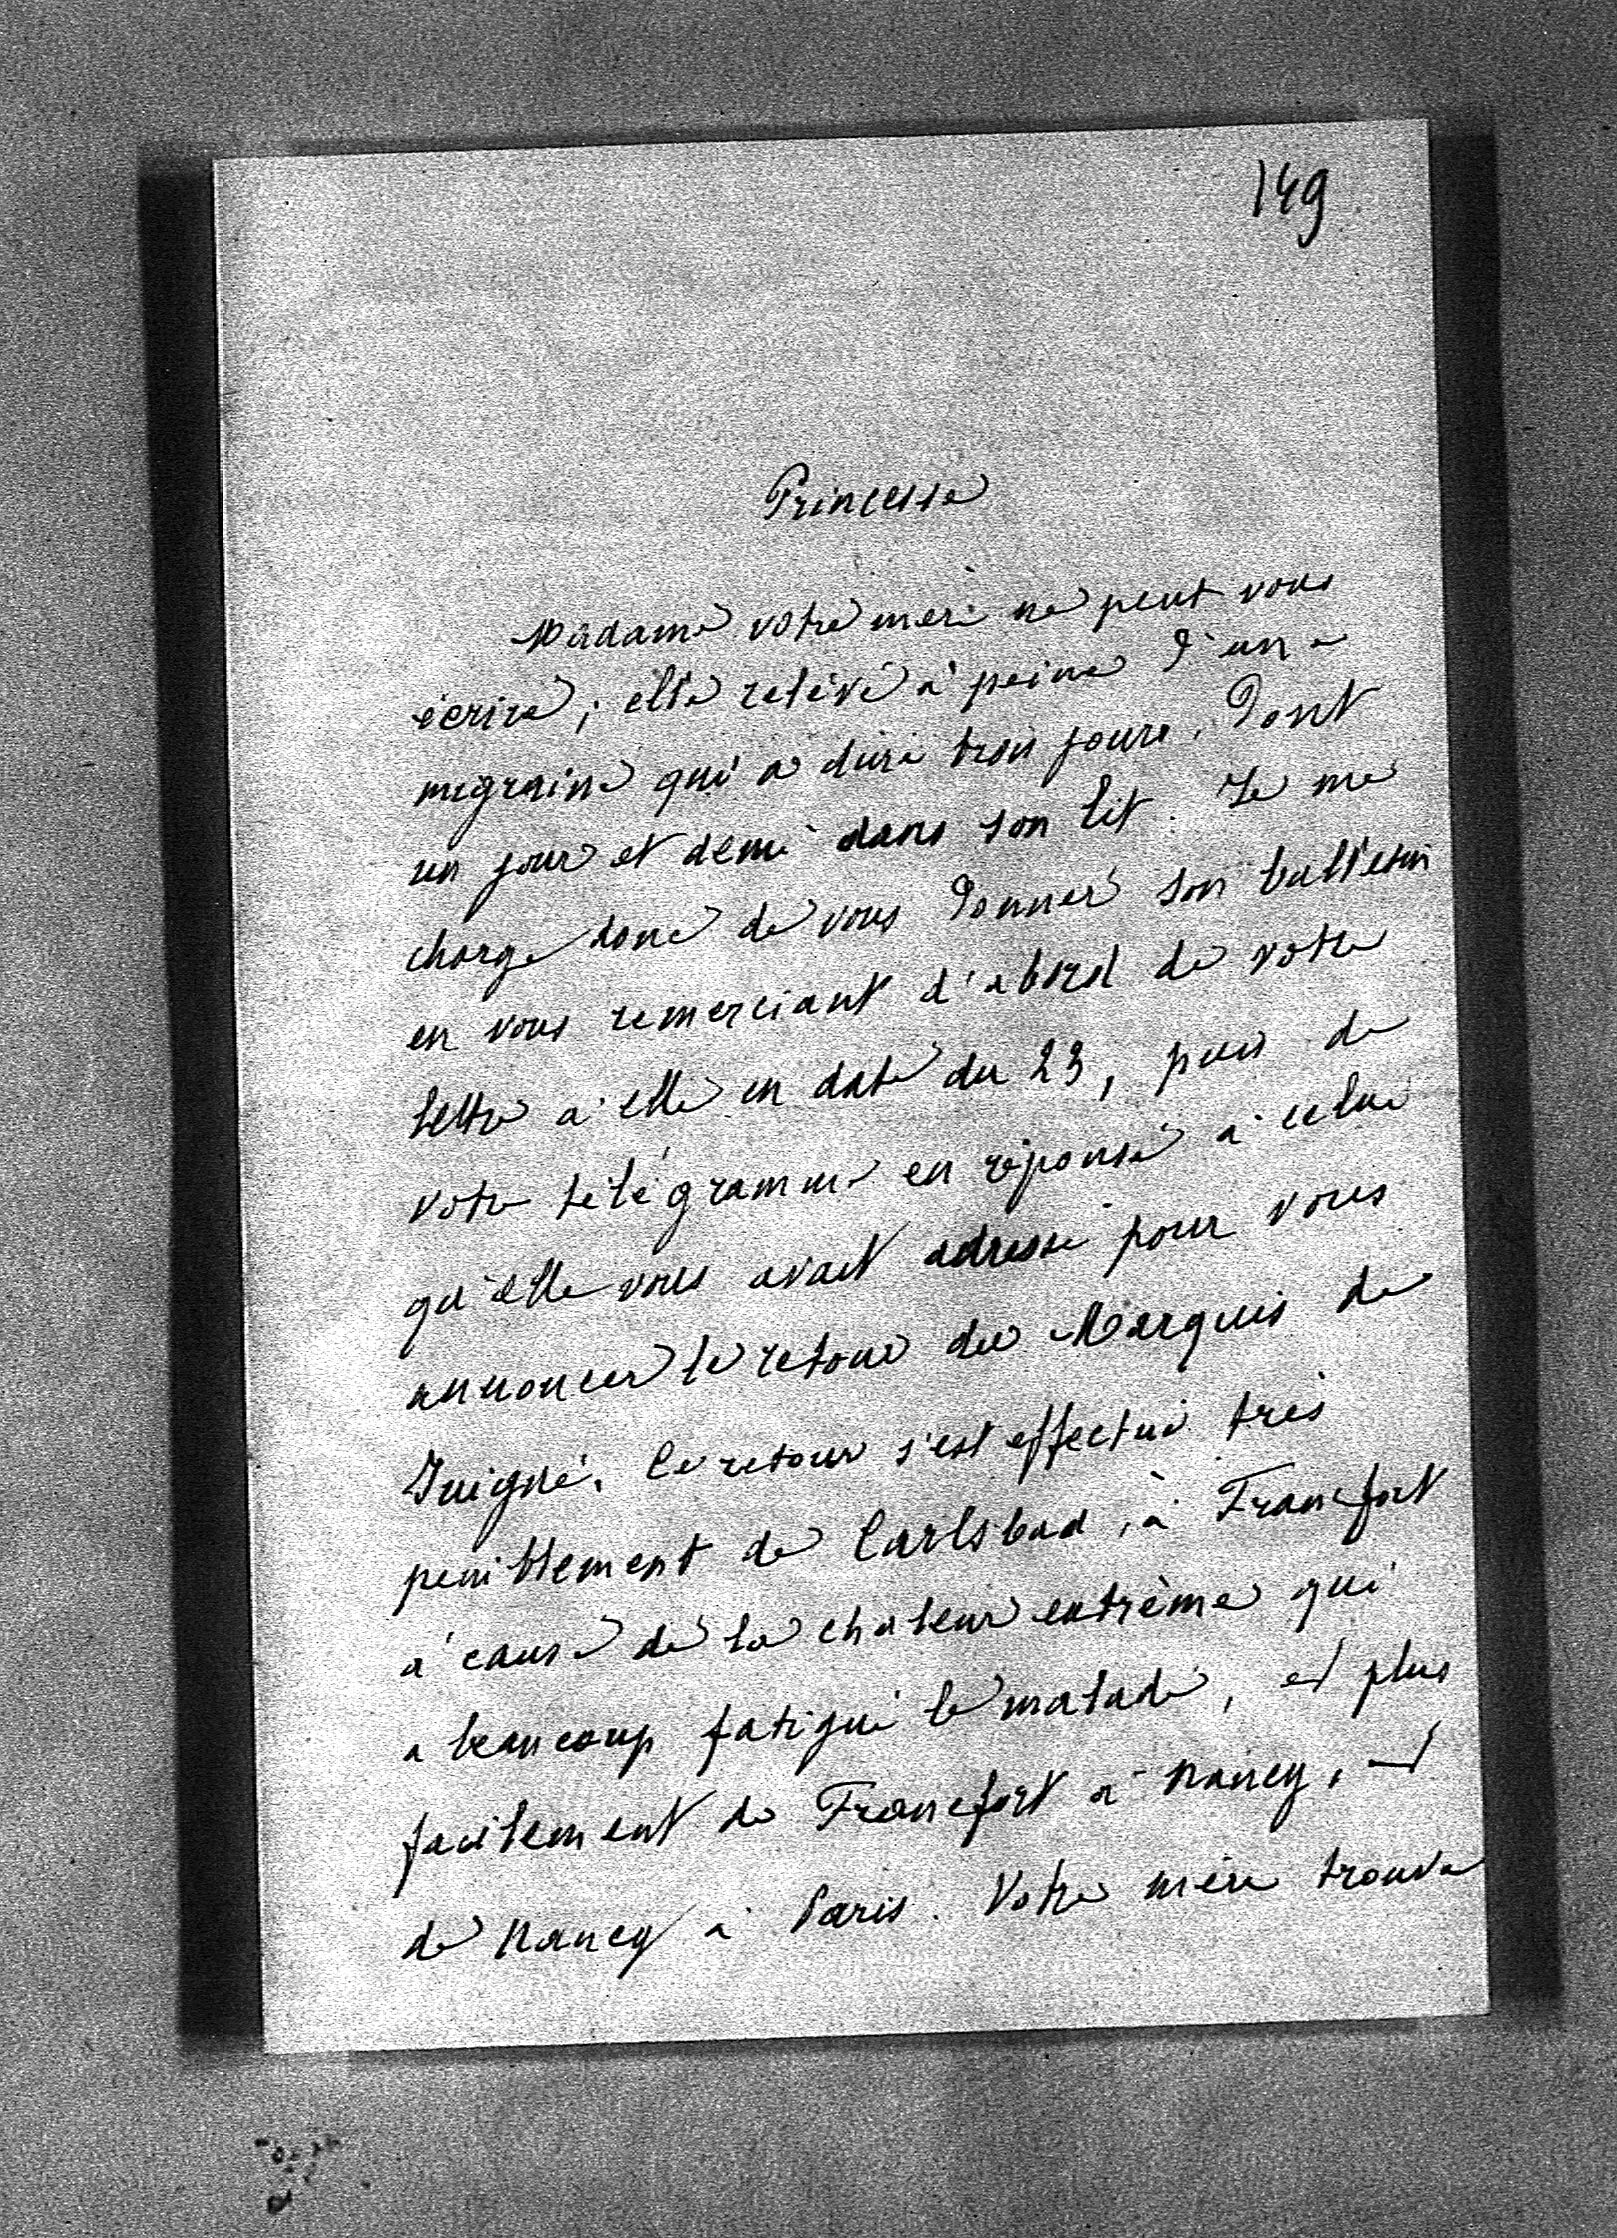 149
Princesse
Madame votre mère ne peut vous
écrire; elle relève à peine d'une
migraine qui a duré trois jours, dont
un jour et demi dans son lit. Je me
charge donc de vous donner son bulletin
en vous remerciant d'abord de votre
lettre à elle en date du 23, puis de
votre télégramme en réponse à celui
qu'elle vous avait adressé pour vous
annoncer le retour du Marquis de
Juigné. Ce retour s'est effectué très
peniblement de Carlsbad, à Francfort
à cause de la chaleur extrème qui
a beaucoup fatigué le malade, et plus
facilement de Francfort à Nancy, et
de Nancy à Paris. Votre mère trouve